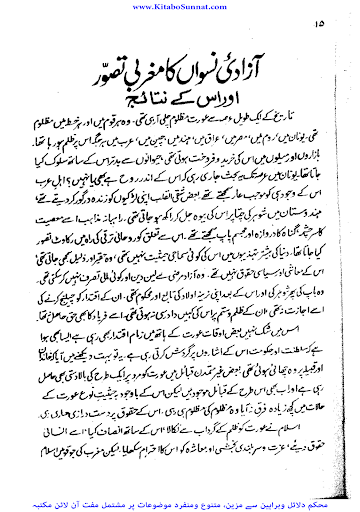 www.KitaboSunnat.com
۱۵
آزادیٔ نسواں کا مغربی تصوّر
اور اس کے نتائج
تاریخ کے ایک طویل عرصہ سے عورت مظلوم چلی آ رہی تھی۔ وہ ہر قوم میں اور ہر خطہ میں مظلوم
تھی۔ یونان میں، روم میں، مصر میں، عراق میں، ہند میں، چین میں، عرب میں ہر جگہ اس پر ظلم ہو رہا تھا۔
بازاروں اور میلوں میں اس کی خرید و فروخت ہوتی تھی، حیوانوں سے بدتر اس کے ساتھ سلوک کیا
جاتا تھا۔ یونان میں عرصہ تک یہ بحث جاری رہی کہ اس کے اندر روح ہے بھی یا نہیں؟ اہل عرب
اس کے وجود ہی کو موجب عار سمجھتے تھے۔ بعض شقی القلب اپنی لڑکیوں کو زندہ درگور کر دیتے تھے،
ہندوستان میں شوہر کی چتا پر اس کی بیوہ جل کر راکھ ہو جاتی تھی۔ راہبانہ مذاہب اسے معصیت
کا سرچشمہ، گناہ کا دروازہ اور مجسم پاپ سمجھتے تھے۔ اس سے تعلق کو روحانی ترقی کی راہ میں رکاوٹ تصور
کیا جاتا تھا۔ دنیا کی بیشتر تہذیبوں میں اس کی کوئی سماجی حیثیت نہیں تھی۔ وہ حقیر اور ذلیل سمجھی جاتی تھی،
اس کے معاشی اور سیاسی حقوق نہیں تھے، وہ آزاد مرضی سے لین دین اور کوئی مالی تصرف نہیں کر سکتی تھی،
وہ باپ کی پھر شوہر کی اور اس کے بعد اپنی نرینہ اولاد کی تابع اور محکوم تھی۔ ان کے اقتدار کو چیلنج کرنے کی
اسے اجازت نہ تھی، ان کے ظلم و ستم پر اس کی کہیں داد رسی نہ ہوتی تھی، اسے فریاد کا بھی حق حاصل نہ تھا۔
اس میں شک نہیں بعض اوقات عورت کے ہاتھ میں زمام اقتدار بھی رہی ہے، ایسا بھی ہوا
ہے کہ سلطنت اور حکومت اس کے اشاروں پر گردش کرتی رہی ہے۔ یہ تو بہت دیکھنے میں آیا کہ خاندان
اور قبیلہ پر وہ چھائی ہوئی تھی، بعض غیر متمدن قبائل میں عورت کو مرد پر ایک طرح کی بالادستی بھی حاصل
رہی ہے اور اب بھی اس طرح کے قبائل موجود ہیں لیکن اس کے باوجود بحیثیت نوع عورت کے
حالات میں کچھ زیادہ فرق نہ آیا۔ وہ مظلوم کی مظلوم ہی رہی۔ اس کے حقوق پر دست درازی جاری رہی
اسلام نے عورت کو ظلم کے گرداب سے نکالا، اس کے ساتھ انصاف کیا، اسے انسانی
حقوق دیئے، عزت و سربلندی بخشی اور معاشرہ کو اس کا احترام سکھایا، لیکن مغرب کی جو قومیں اسلام
محکم دلائل وبراہین سے مزین، متنوع ومنفرد موضوعات پر مشتمل مفت آن لائن مکتبہ